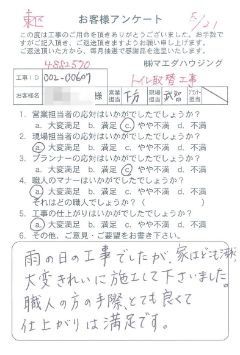 東区 お客様アンケート 5/21
この度は工事のご用命を頂きありがとうございました。お手数で
すがご記入頂き、ご返送頂きますようお願い申し上げます。
ご返送頂いた方から、毎月抽選で感謝品を進呈いたします。
4882570 ㈱マエダハウジング
工事ID 002-00607 トイレ取替工事
お客様名 様 営業担当 下方 現場担当
1. 営業担当者の応対はいかがでしたでしょうか?
a. 大変満足 b. 満足 c. やや不満 d. 不満
2. 現場担当者の応対はいかがでしたでしょうか?
a. 大変満足 b. 満足 c. やや不満 d. 不満
3. プランナーの応対はいかがでしたでしょうか?
a. 大変満足 b. 満足 c. やや不満 d. 不満
4. 職人のマナーはいかがでしたでしょうか?
a. 大変満足 b. 満足 c. やや不満 d. 不満
それはどの職人でしょうか?( )
5. 工事の仕上がりはいかがでしたでしょうか?
a. 大変満足 b. 満足 c. やや不満 d. 不満
6. その他、ご意見・ご要望をお書き下さい。
雨の日の工事でしたが、家はども
大変きれいに施工して下さいました。
職人の方の手際、とても良くて
仕上がりは満足です。